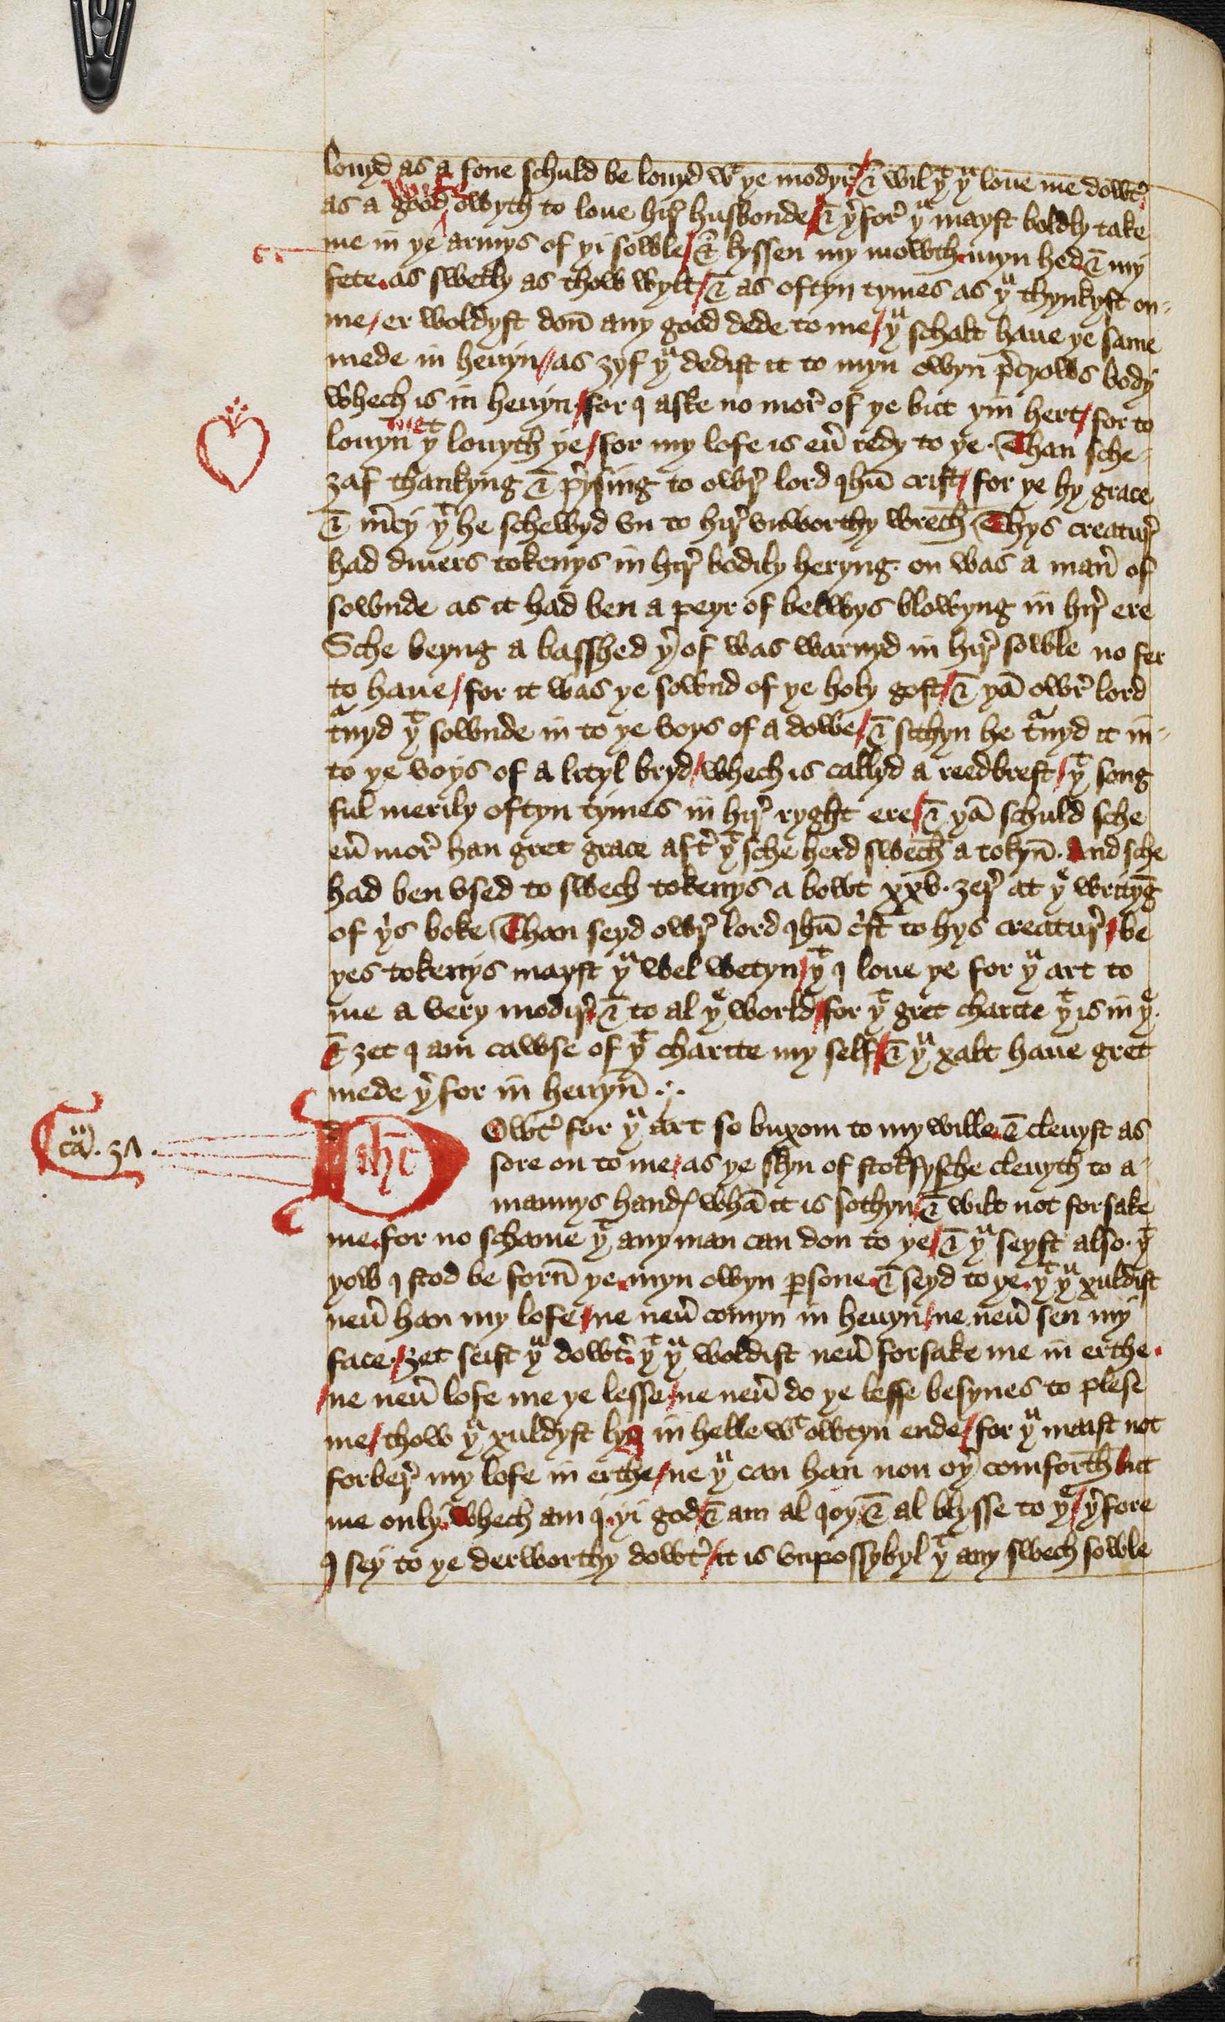 louyd as a sone schuld be louyd wͭ ye modyr̉ / & wil yͭ yͧ loue me dowtꝰ
as a good wife owyth to loue hir̉ husbonde / & yꝰfor̉ yͧ mayst boldly take
me in ye armys of yi sowle / & kyssen my mowth. myn hed & my
fete. as swetly as thow wylt / & as oftyn tymes as yͧ thynkyst on-
me / er woldyst don̄ any good dede to me / yͧ schalt haue ye same
mede in heuyn / as ȝyf yͧ dedist it to myn owyn p̉cyows body
whech is in heuyn / for I aske no mor̉ of ye but yin hert / for to
louyn me yͭ louyth ye / for my lofe is eū redy to ye. Than sche-
ȝaf thankyng & p̉ysing to owr̉ lord Ihū crist / for ye hy grace
& m̉cy yͭ he schewyd vn to hir̉ vnworthy wrech Thys creatur̉
had diuers tokenys in hir̉ bodily heryng. on was a man̉ of
sownde as it had ben a peyr of belwys blowyng in hir̉ ere
Sche beyng a basshed yꝰof was warnyd in hir̉ sowle no fer
to haue / for it was ye sownd of ye holy gost / & yā owr̉ lord
tͣnyd yͭ sownde in to ye voys of a dowe / & sithyn he tͣnyd it in-
to ye voys of a lityl bryd / whech is callyd a reedbrest / yͭ song
ful merily oftyn tymes in hir̉ ryght ere / & yā schuld sche
eū mor̉ han gret grace aft̉ yͭ sche herd swech a tokyn̄. And sche
had ben vsed to swech tokenys a bowt xxv. ȝer̉ at yͤ writyḡ
of yis boke Than seyd owr̉ lord Ihū c̉st to hys creatur̉ / be
yes tokenys mayst yͧ wel wetyn / yͭ I loue ye for yͧ art to
me a very modir̉ & to al yͤ world / for yͭ gret charite yͭ is in yͤ.
& ȝet I am cawse of yͭ charite my self / & yͧ xalt haue gret
mede yꝰfor in heuyn̄ .·.
cam̄. 31.
d
Ihc̄
Owtꝰ for yͧ art so buxom to my wille & cleuyst as
sore on to me / as ye skyn of stokfysche cleuyth to a-
mannys handꝭ whā it is sothyn & wilt not forsake
me for no schame yͭ any man can don to ye / & yͧ seyst also. yͭ
yow I stod be forn̄ ye. myn owyn ꝑsone & seyd to ye. yͭ yͧ xuldist
neū han my lofe / ne neū comyn in heuyn / ne neū sen my
face / ȝet seist yͧ dowtꝰ yͭ yͧ woldist neū forsake me in erthe.
/ ne neū lofe me ye lesse / ne neū do ye lesse besynes to plese
me / thow yͧ xuldyst lyn in helle wͭ owtyn ende / for yͧ maist not
forber̉ my lofe in erthe / ne yͧ can han non oyꝰ comforth but
me only. Whech am I. yi god & am al ioy & al blysse to yͤ / yꝰfore
I sey to ye derworthy dowtꝰ / it is vnpossybyl yͭ any swech sowle